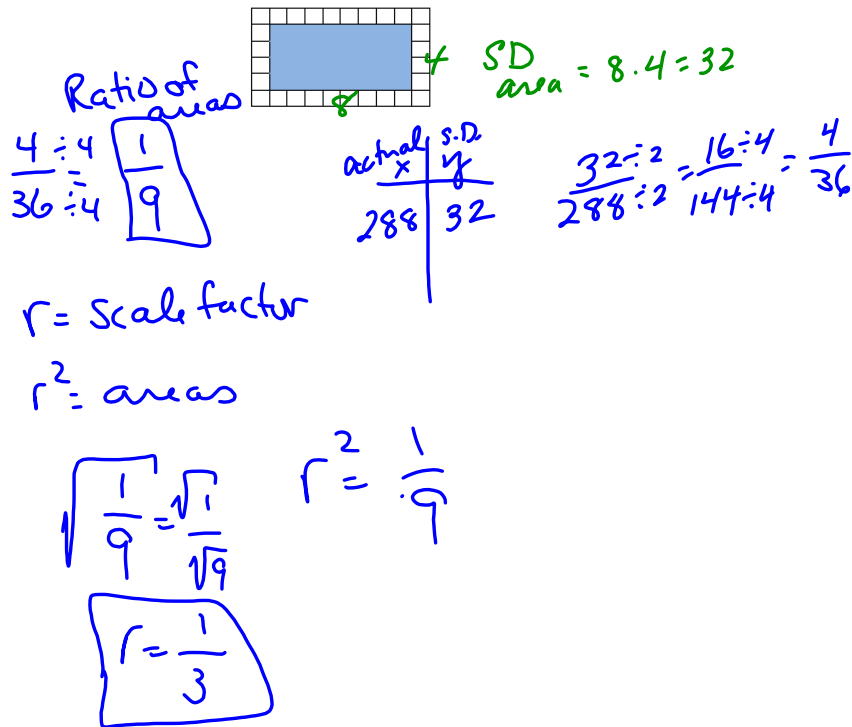 4
8
SD area = 8 · 4 = 32
Ratio of areas
4 ÷4 / 36 ÷4 = 1/9
actual x | S.D. y
288 | 32
32 ÷2 / 288 ÷2 = 16 ÷4 / 144 ÷4 = 4/36
r = scale factor
r² = areas
√(1/9) = √1/√9
r² = 1/9
r = 1/3